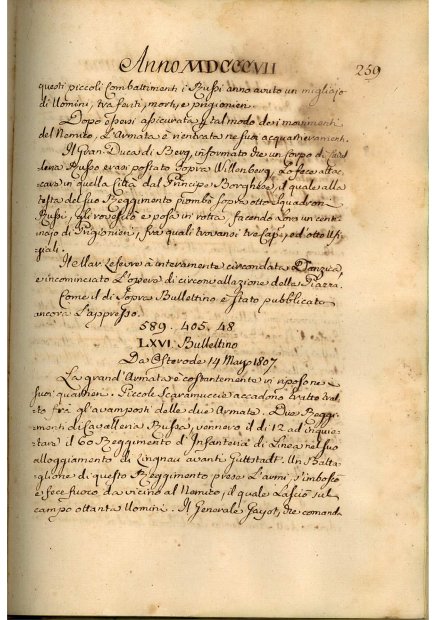 Anno MDCCCVII 259
questi piccoli Combattimenti i Russi anno avuto un migliajo
di Uomini, tra feriti, morti, e prigionieri.
Dopo essersi assicurata a tal modo dei movimenti
del Nemico, L'Armata è rientrata ne suoi acquartieramenti.
Il Gran Duca di Berg, informato che un Corpo di Caval
leria Russo erasi postato sopra Willenberg, Lo fece attac
care in quella Città dal Principe Borghese, il quale alla
testa del suo Reggimento piombò sopra otto squadroni
Russi, gli rovesciò e pose in rotta, facendo loro un centi
najo di Prigionieri, fra quali trovansi tre Cap: ed otto Uffi
ziali.
Il Mar. Lefevre à interamente circondata Danzica,
e incominciato L'opera di circonvallazione della Piazza.
Come il di sopra Bullettino è stato pubblicato
ancora L'appresso.
589. 405. 48
LXVI Bullettino
Da Osterode 14 Marzo 1807.
La grand'Armata è costantemente in riposo ne
suoi quartieri. Piccole Scaramuccie accadono tratto trat
to fra gl'avamposti delle due Armate. Due Reggi
menti di Cavalleria Russa, vennero il dì 12 ad inquie
tare il 60 Reggimento d'Infanteria di Linea nel suo
alloggiamento di Lingnau avanti Guttstadt. Un Batta
glione di questo Reggimento prese L'armi, s'imboscò
e fece fuoco da vicino al Nemico, il quale Lasciò sul
campo ottanta Uomini. Il Generale Guyot, che comanda